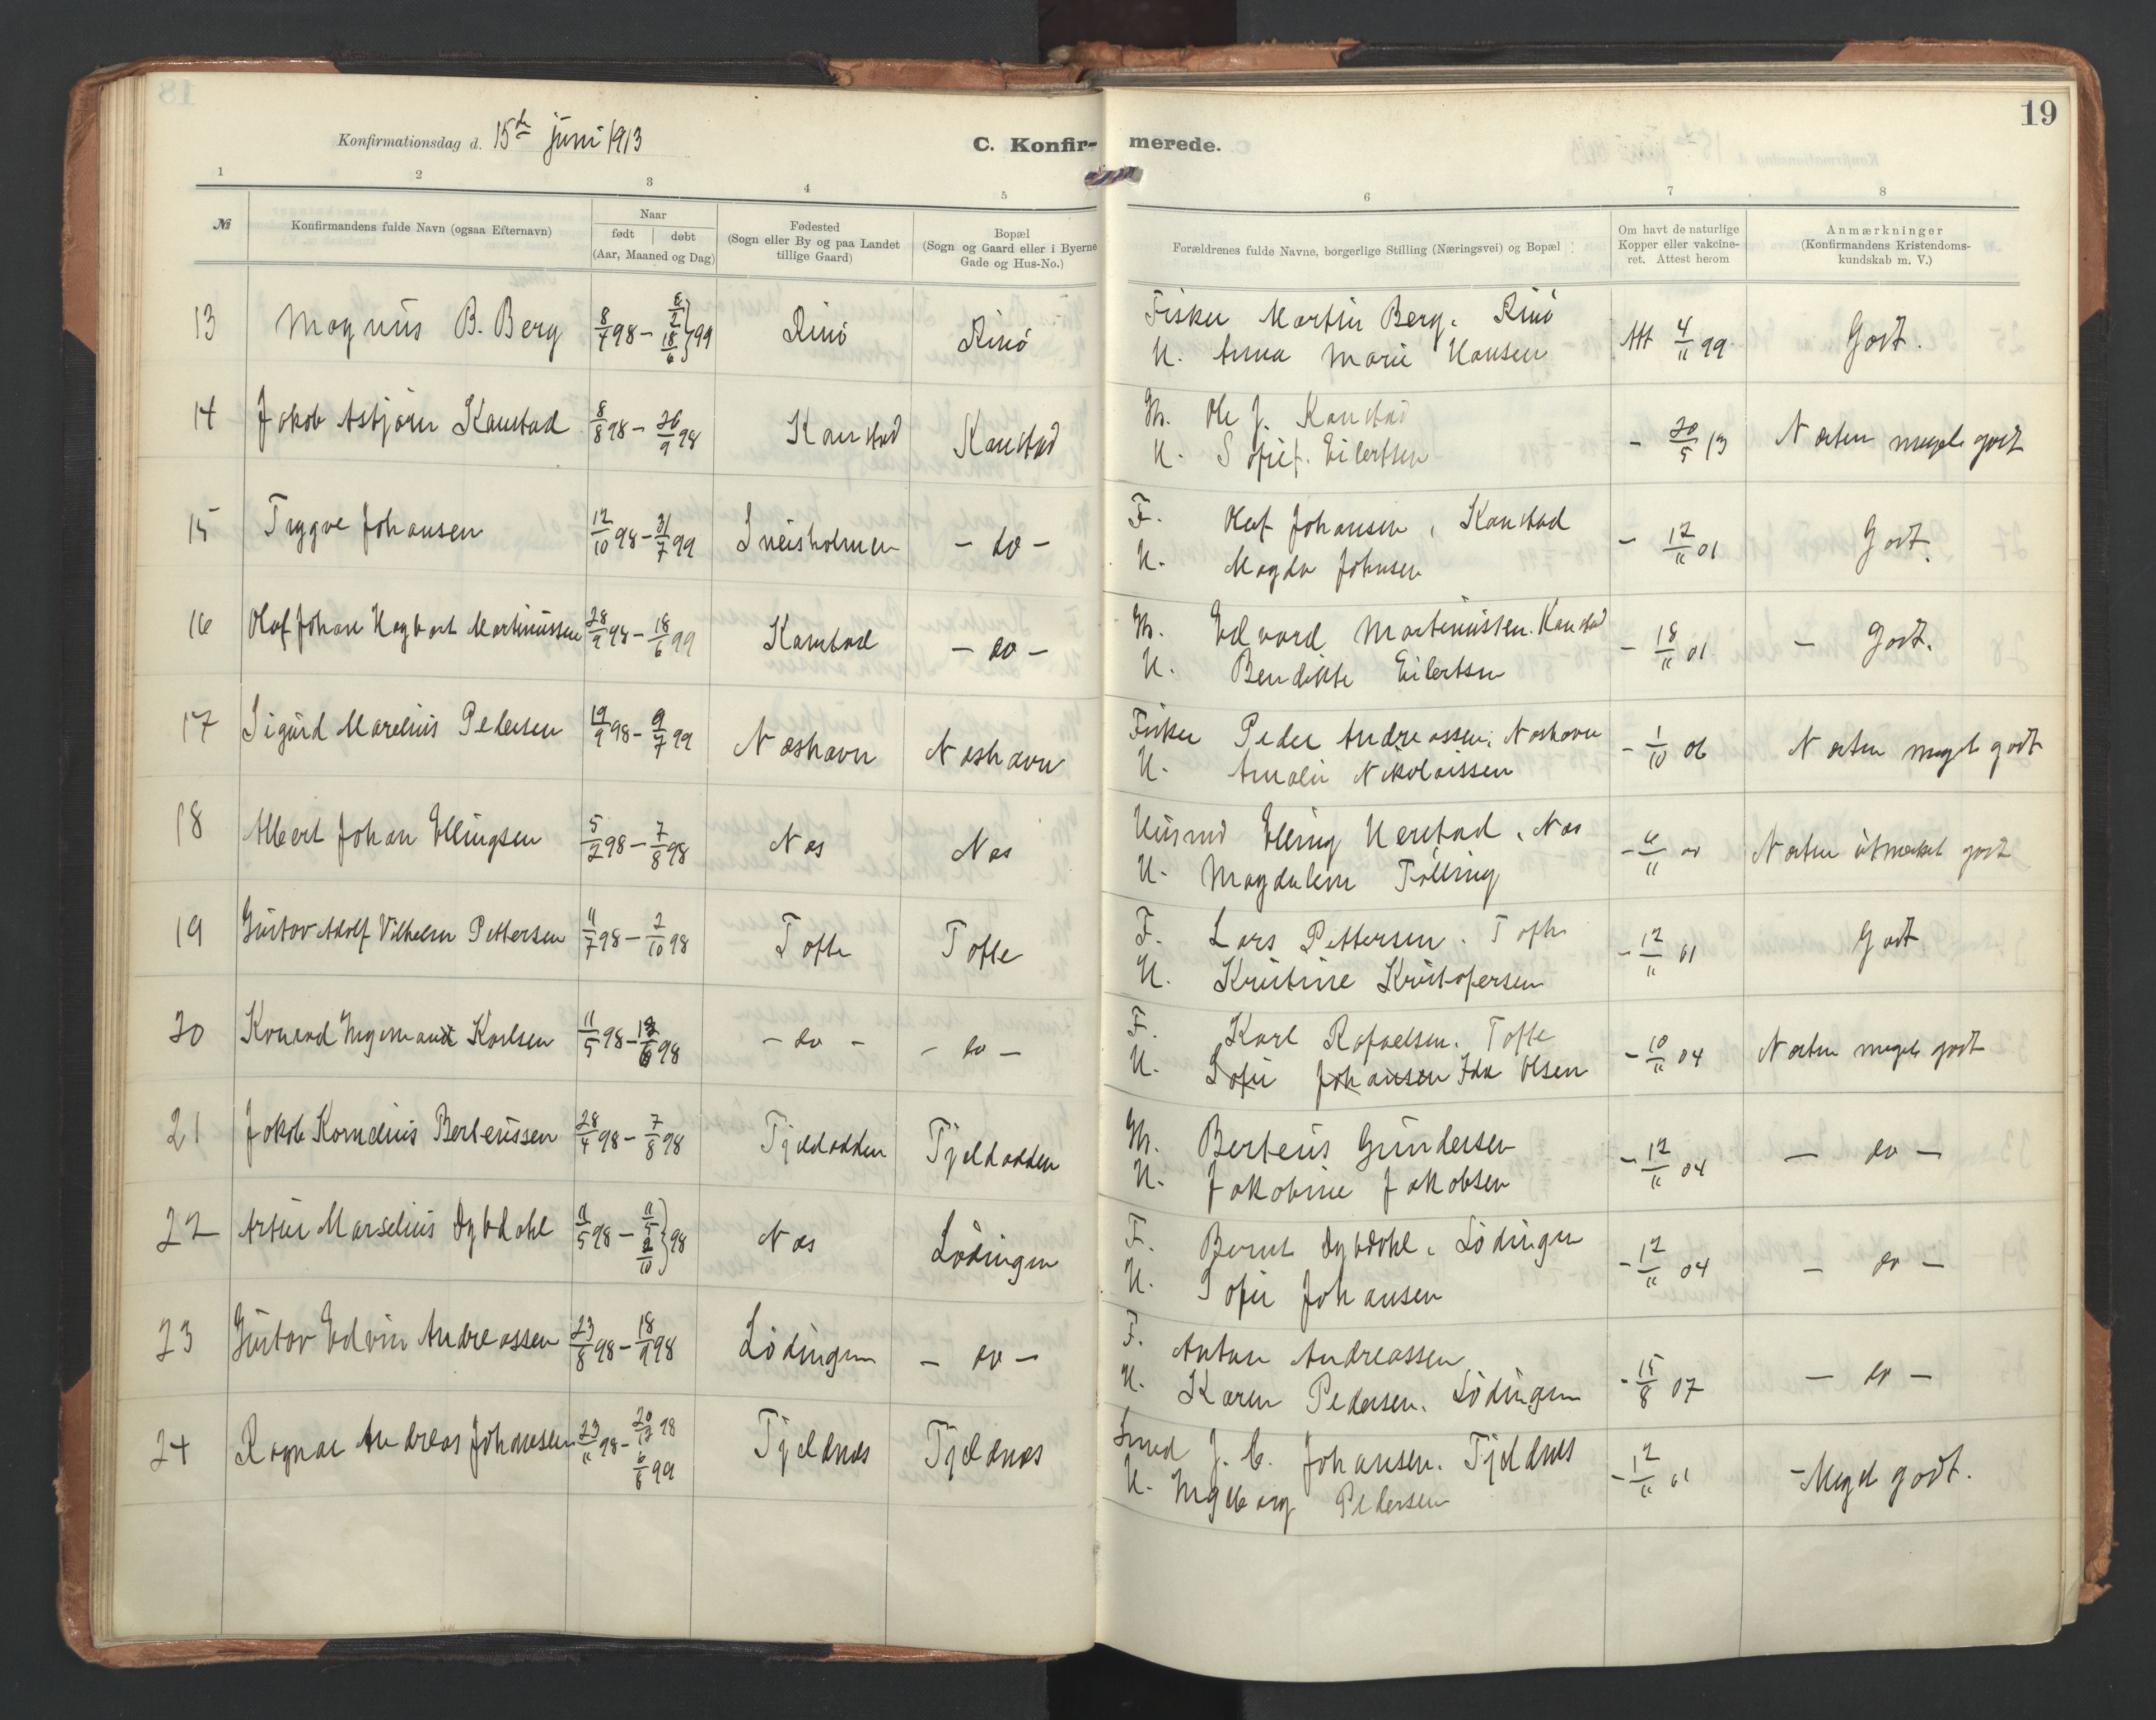 18
19
Konfirmationsdag d. 15de juni 1913
C. Konfir- merede.
1 2 3 4 5 6 7 8
№ Konfirmandens fulde Navn (ogsaa Efternavn) Naar født døbt (Aar, Maaned og Dag) Fødested (Sogn eller By og paa Landet tillige Gaard) Bopæl (Sogn og Gaard eller i Byerne Gade og Hus-No.) Forældrenes fulde Navne, borgerlige Stilling (Næringsvei) og Bopæl Om havt de naturlige Kopper eller vakcineret. Attest herom Anmærkninger (Konfirmandens Kristendomskundskab m. V.)
13 Magnus B. Berg 8/4 98 – 8/2 18/6 } 99 Rinø Rinø Fisker Martin Berg. Rinø Att 4/11 99 Godt.
H. Anna Marie Hansen
14 Jakob Asbjørn Kanstad 8/8 98 – 26/9 98 Kanstad Kanstad Gb. Ole J. Kanstad – 20/5 13 Næsten meget godt
H. Sofie f. Eilertsen
15 Trygve Johansen 12/10 98 – 31/7 99 Sneisholmen – do – F. Olaf Johansen, Kanstad – 12/11 01 Godt.
H. Magda Johnsen
16 Olaf Johan Hagbart Martinussen 28/9 98 – 18/6 99 Kanstad – do – Gb. Edvard Martinussen. Kanstad – 18/11 01 – Godt.
H. Bendikte Eilertsen
17 Sigurd Marelius Pedersen 19/9 98 – 9/7 99 Næshavn Næshavn Fisker Peder Andreassen, Næshavn – 1/10 06 Næsten meget godt
H. Amalie Nikolaissen
18 Albert Johan Ellingsen 5/2 98 – 7/8 98 Næs Næs Husmd Elling Nerstad, Næs – 6/11 Næsten utmerket godt
H. Magdalene Tølling
19 Gustav Adolf Vilhelm Pettersen 11/7 98 – 2/10 98 Tofte Tofte F. Lars Pettersen. Tofte – 12/11 01 Godt
H. Kristine Kristofersen
20 Konrad Ingemand Karlsen 11/5 98 – 12/6 98 – do – – do – F. Karl Rafaelsen. Tofte – 10/11 04 Næsten meget godt
H. Sofie Johansen Ida Olsen
21 Jakob Kornelius Berteussen 28/4 98 – 7/8 98 Tjeldodden Tjeldodden Gb. Berteus Gundersen – 12/11 04 – do –
H. Jakobine Jakobsen
22 Artur Marselius Dybdahl 11/5 98 – 11/5 2/10 } 98 Næs Lødingen F. Bernt Dybdahl, Lødingen – 12/11 04 – do –
H. Sofie Johansen
23 Gustav Edvin Andreassen 23/8 98 – 18/9 98 Lødingen – do – F. Anton Andreassen – 15/8 07 – do –
H. Karen Pedersen. Lødingen
24 Ragnar Andreas Johansen 23/11 98 – 20/12 98 6/6 99 Tjeldnes Tjeldnes Smed J. C. Johansen. Tjeldnes – 12/11 01 – Meget godt.
H. Ingeborg Pedersen